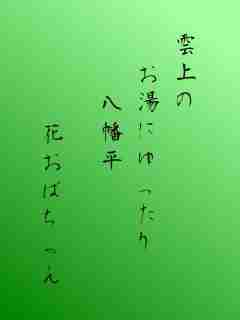 雲上の
お湯にゆったり
八幡平
花おばちゃん